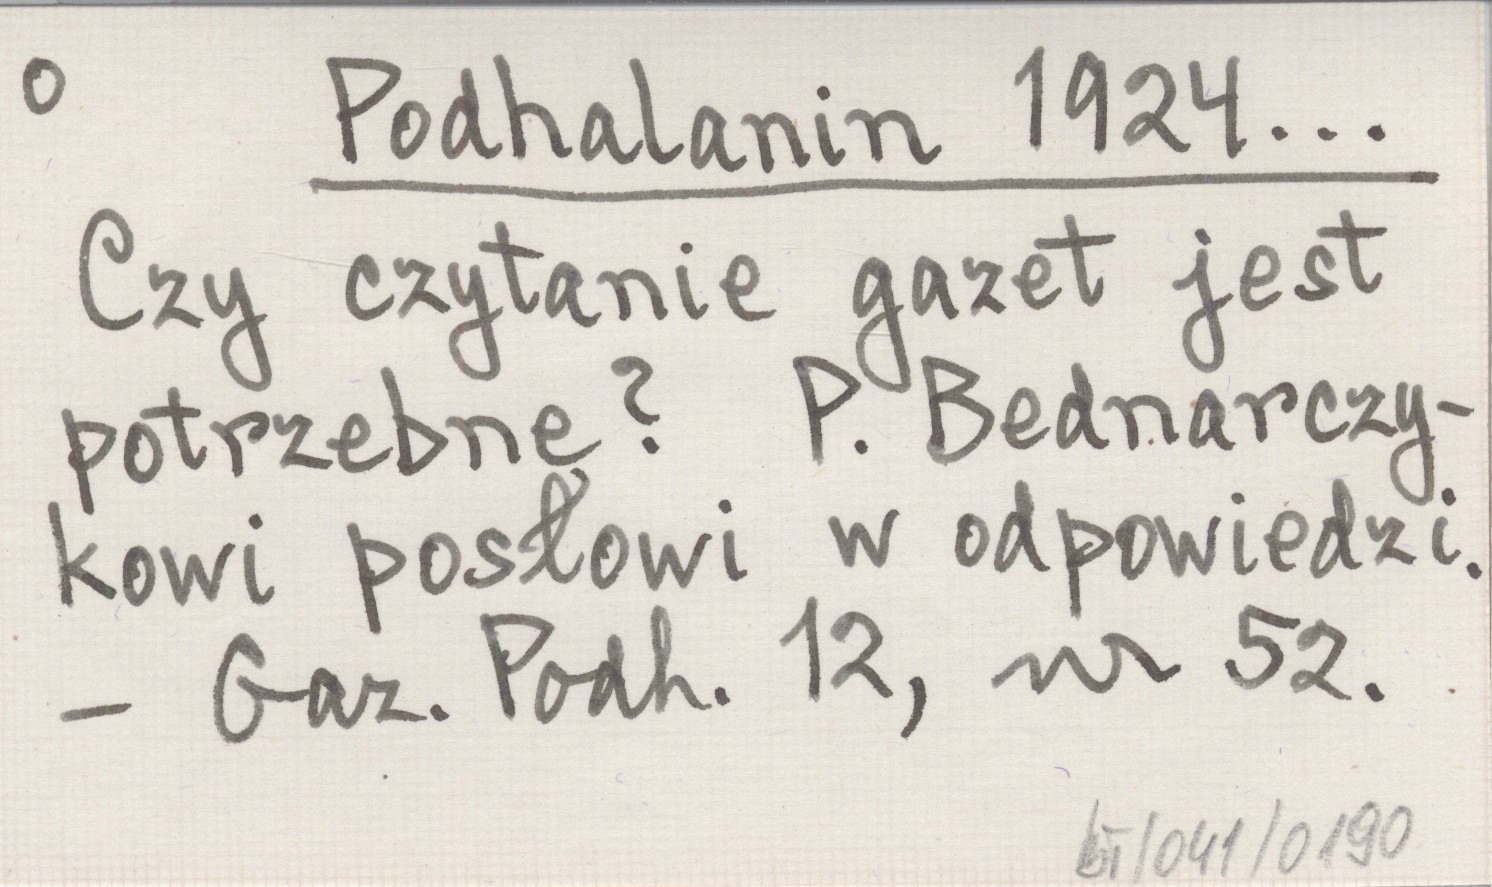 o Podhalanin 1924...
Czy czytanie gazet jest
potrzebne? P. Bednarczy-
kowi posłowi w odpowiedzi.
- Gaz. Podh. 12, nr 52.
/041/0190